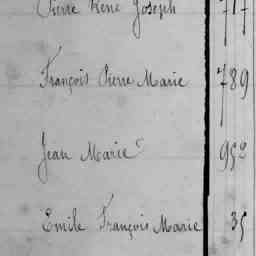 Pierre René Joseph 717
François Pierre Marie 789
Jean Marie 952
Emile François Marie 35